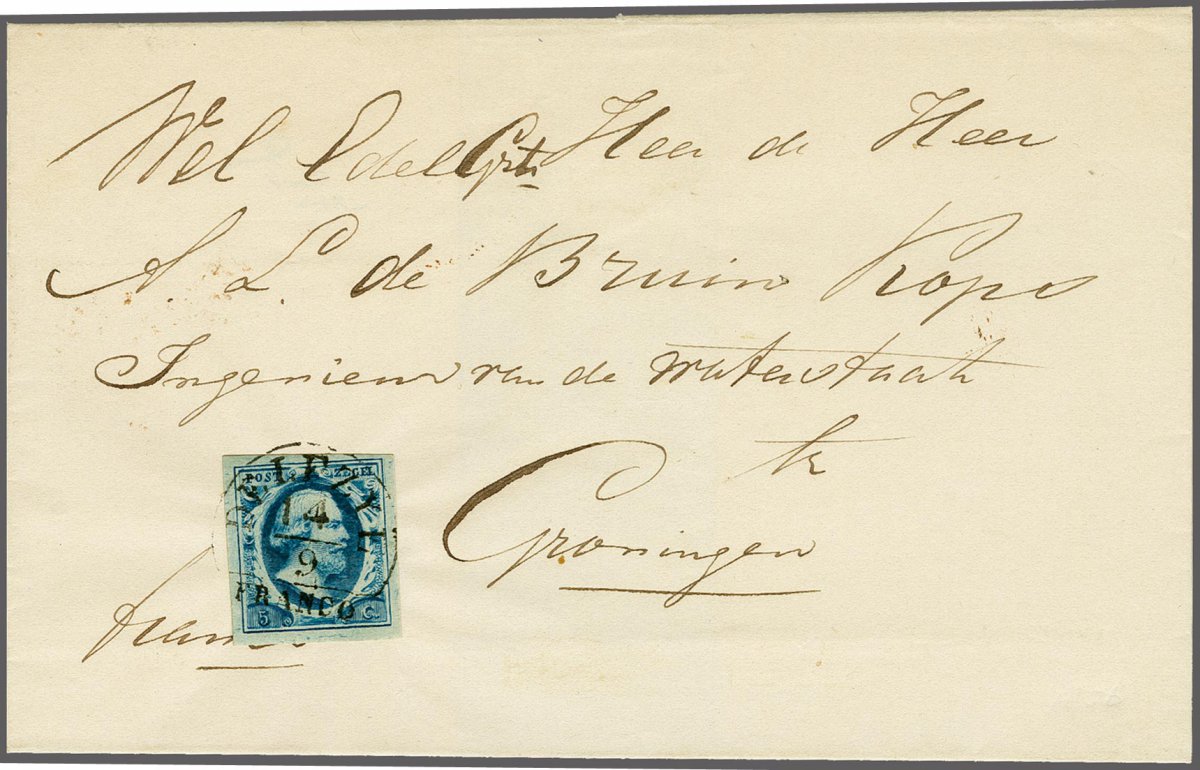 Wel Edel Gestr Heer de Heer
A. L. de Bruin Kops
Ingenieur van de waterstaat
te
Groningen
POSTZEGEL
DELFZYL
14
9
FRANCO
5 C.